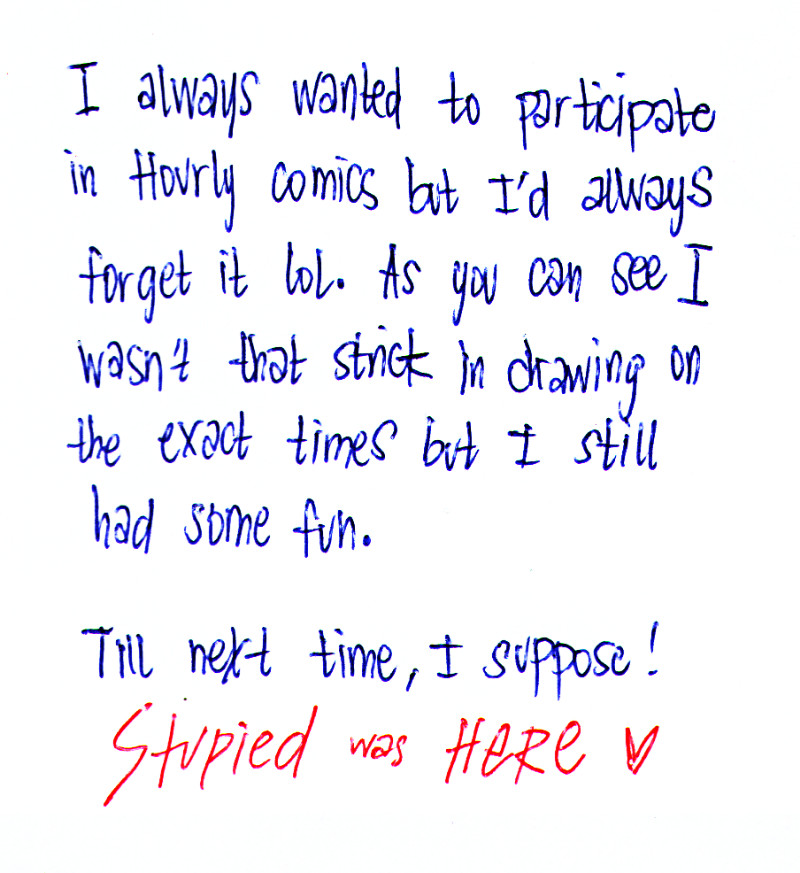 I always wanted to participate
in Hourly comics but I'd always
forget it lol. As you can see I
wasn't that strick in drawing on
the exact times but I still
had some fun.
Till next time, I suppose!
Stupied was HERE ♥